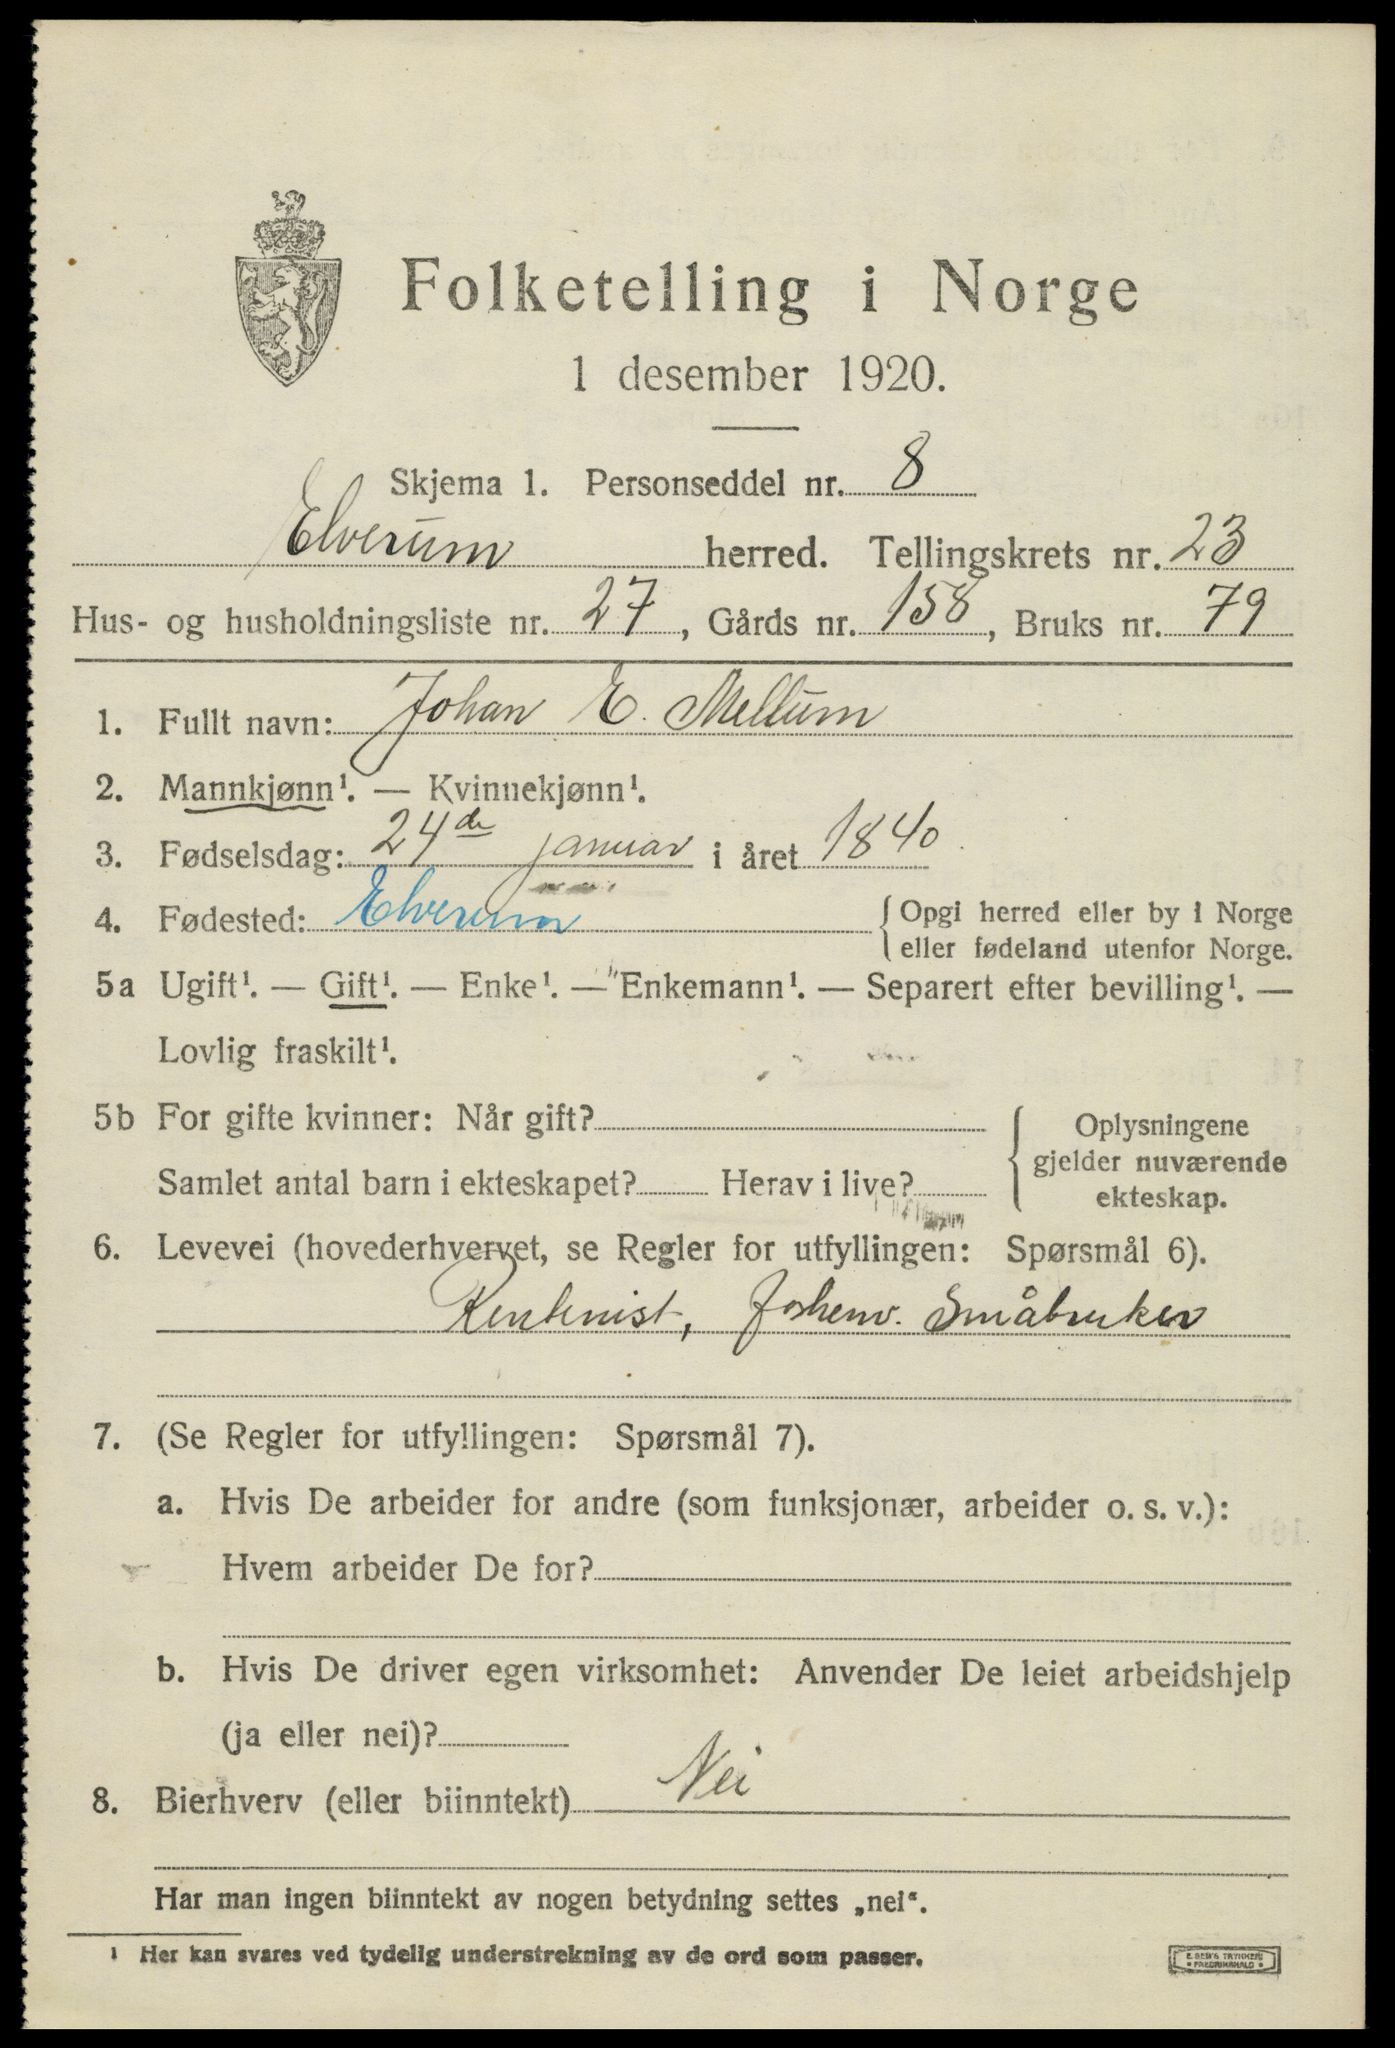 Folketelling i Norge
1 desember 1920.
Skjema 1. Personseddel nr. 8
Elverum herred. Tellingskrets nr. 23
Hus- og husholdningsliste nr. 27, Gårds nr. 158, Bruks nr. 79
1. Fullt navn: Johan E. Mellum
2. Mannkjønn¹. — Kvinnekjønn¹.
3. Fødselsdag: 24de januar i året 1840
4. Fødested: Elverum {Opgi herred eller by i Norge
eller fødeland utenfor Norge.
5a Ugift¹. — Gift¹. — Enke¹. — Enkemann¹. — Separert efter bevilling¹. —
Lovlig fraskilt¹.
5b For gifte kvinner: Når gift? { Oplysningene
gjelder nuværende
Samlet antal barn i ekteskapet? Herav i live?
ekteskap.
6. Levevei (hovederhvervet, se Regler for utfyllingen: Spørsmål 6).
Rentenist, forhenv. Småbruker
7. (Se Regler for utfyllingen: Spørsmål 7).
a. Hvis De arbeider for andre (som funksjonær, arbeider o. s. v.):
Hvem arbeider De for?
b. Hvis De driver egen virksomhet: Anvender De leiet arbeidshjelp
(ja eller nei)?
8. Bierhverv (eller biinntekt) Nei
Har man ingen biinntekt av nogen betydning settes „nei“.
¹ Her kan svares ved tydelig understrekning av de ord som passer.
E. SEM'S TRYKKERI
• FREDRIKSHALD •